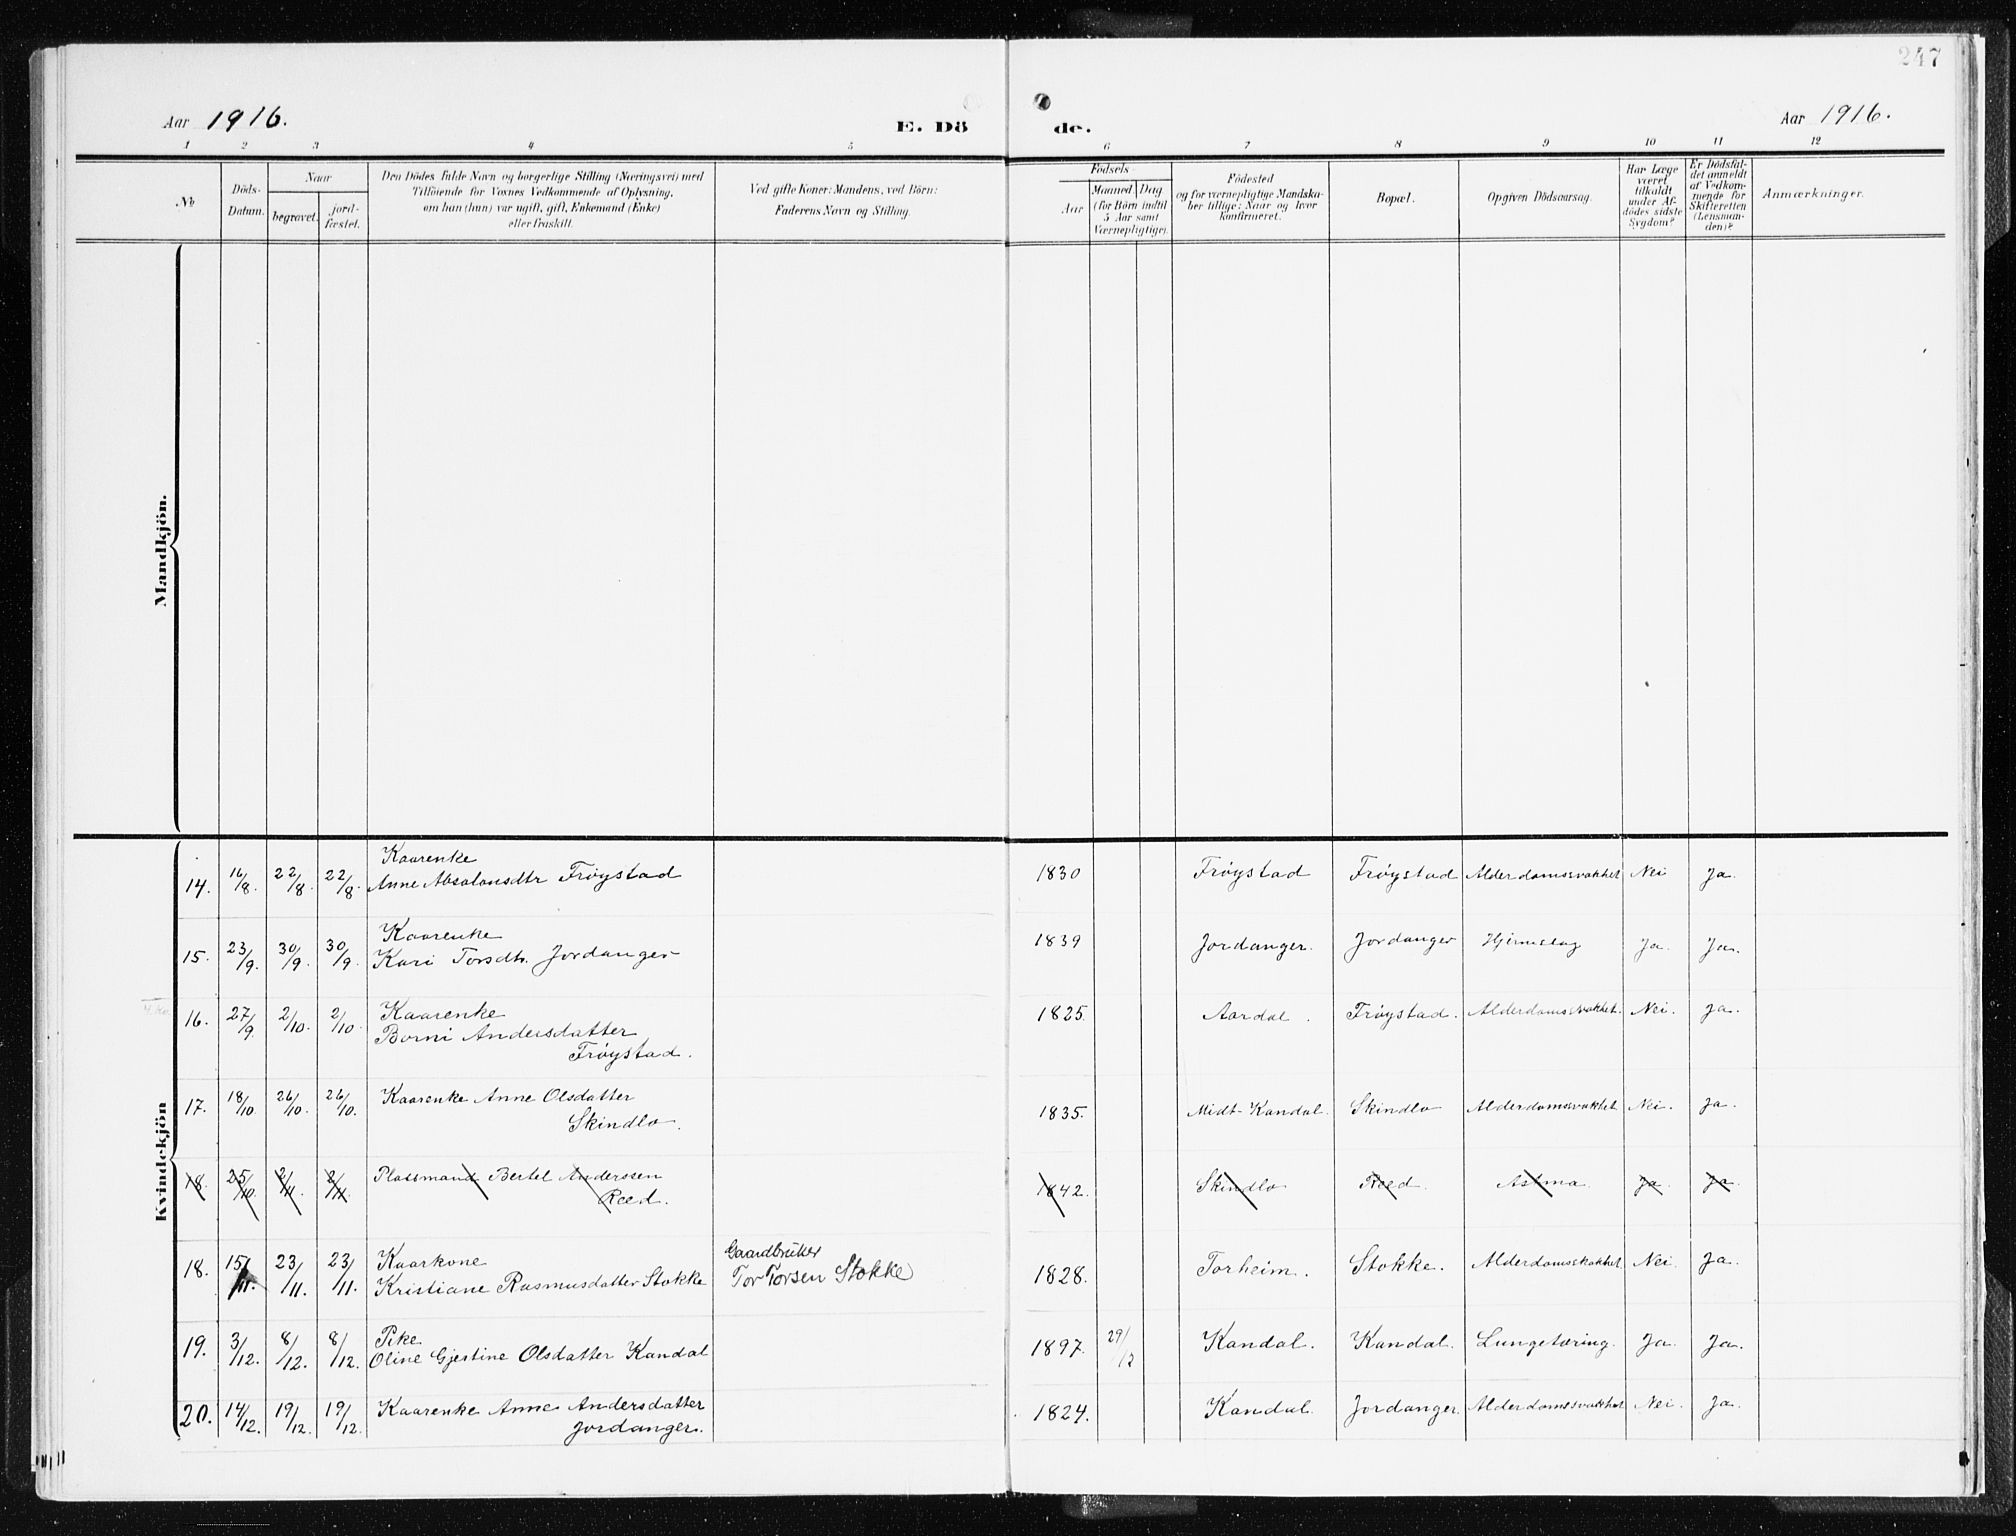 247
Aar 1916.
E. Dö de.
Aar 1916.
1 2 3 4 5 6 7 8 9 10 11 12
No
Döds-
Datum.
Naar
begravet.
jord-
fæstet.
Den Dödes fulde Navn og borgerlige Stilling (Næringsvei) med
Tilföiende for Voxnes Vedkommende af Oplysning,
om han (hun) var ugift, gift, Enkemand (Enke)
eller fraskilt.
Ved gifte Koner: Mandens, ved Börn:
Faderens Navn og Stilling.
Födsels-
Aar
Maaned Dag
(for Börn indtil
5 Aar samt
Værnepligtige).
Födested
og for værnepligtige Mandska-
ber tillige: Naar og hvor
konfirmeret.
Bopæl.
Opgiven Dödsaarsag.
Har Læge
været
tilkaldt
under Af-
dödes sidste
Sygdom?
Er Dödsfal-
det anmeldt
af Vedkom-
mende for
Skifteretten
(Lensman-
den)?
Anmærkninger.
Mandkjön.
Kvindekjön
Kaarenke
14. 16/8. 22/8. 22/8. Anne Absalonsdtr Frøystad 1830 Frøystad Frøystad Alderdomssvakhet Nei Ja.
Kaarenke
15. 23/9. 30/9. 30/9. Kari Torsdtr. Jordanger 1839 Jordanger. Jordanger Hjerneslag Ja. Ja.
Kaarenke
16. 27/9. 2/10. 2/10. Borni Andersdatter 1825. Aardal. Frøystad. Alderdomssvakhet. Nei. Ja.
Frøystad.
17. 18/10. 26/10. 26/10. Kaarenke Anne Olsdatter 1835. Midt-Kandal. Skindlo Alderdomssvakhet Nei. Ja.
Skindlo.
18. 25/10. 2/11. 2/11. Plassmand Bertel Anderssen 1842. Skindlo Reed. Astma. Ja. Ja.
Reed.
Kaarkone Gaardbruker
18. 15/11. 23/11. 23/11. Kristiane Rasmusdatter Stokke Tor Torsen Stokke 1828. Torheim. Stokke. Alderdomssvakhet Nei. Ja.
Pike
19. 3/12. 8/12. 8/12. Oline Gjestine Olsdatter Kandal 1897. 29/12 Kandal. Kandal. Lungetæring. Ja. Ja.
20. 14/12. 19/12. 19/12. Kaarenke Anne Andersdatter 1824. Kandal. Jordanger. Alderdomssvakhet Nei. Ja.
Jordanger.